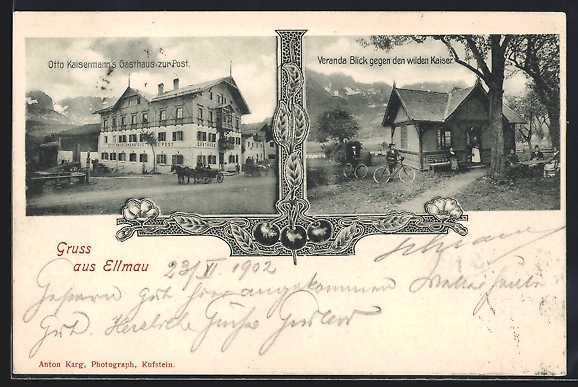 Otto Kaisermann's Gasthaus zur Post.
Veranda Blick gegen den wilden Kaiser
GASTHAUS
Gruss
aus Ellmau
23/VI 1902
Gestern gut hier angekommen Wetter heute
gut. Herzliche Grüsse
Anton Karg, Photograph, Kufstein.